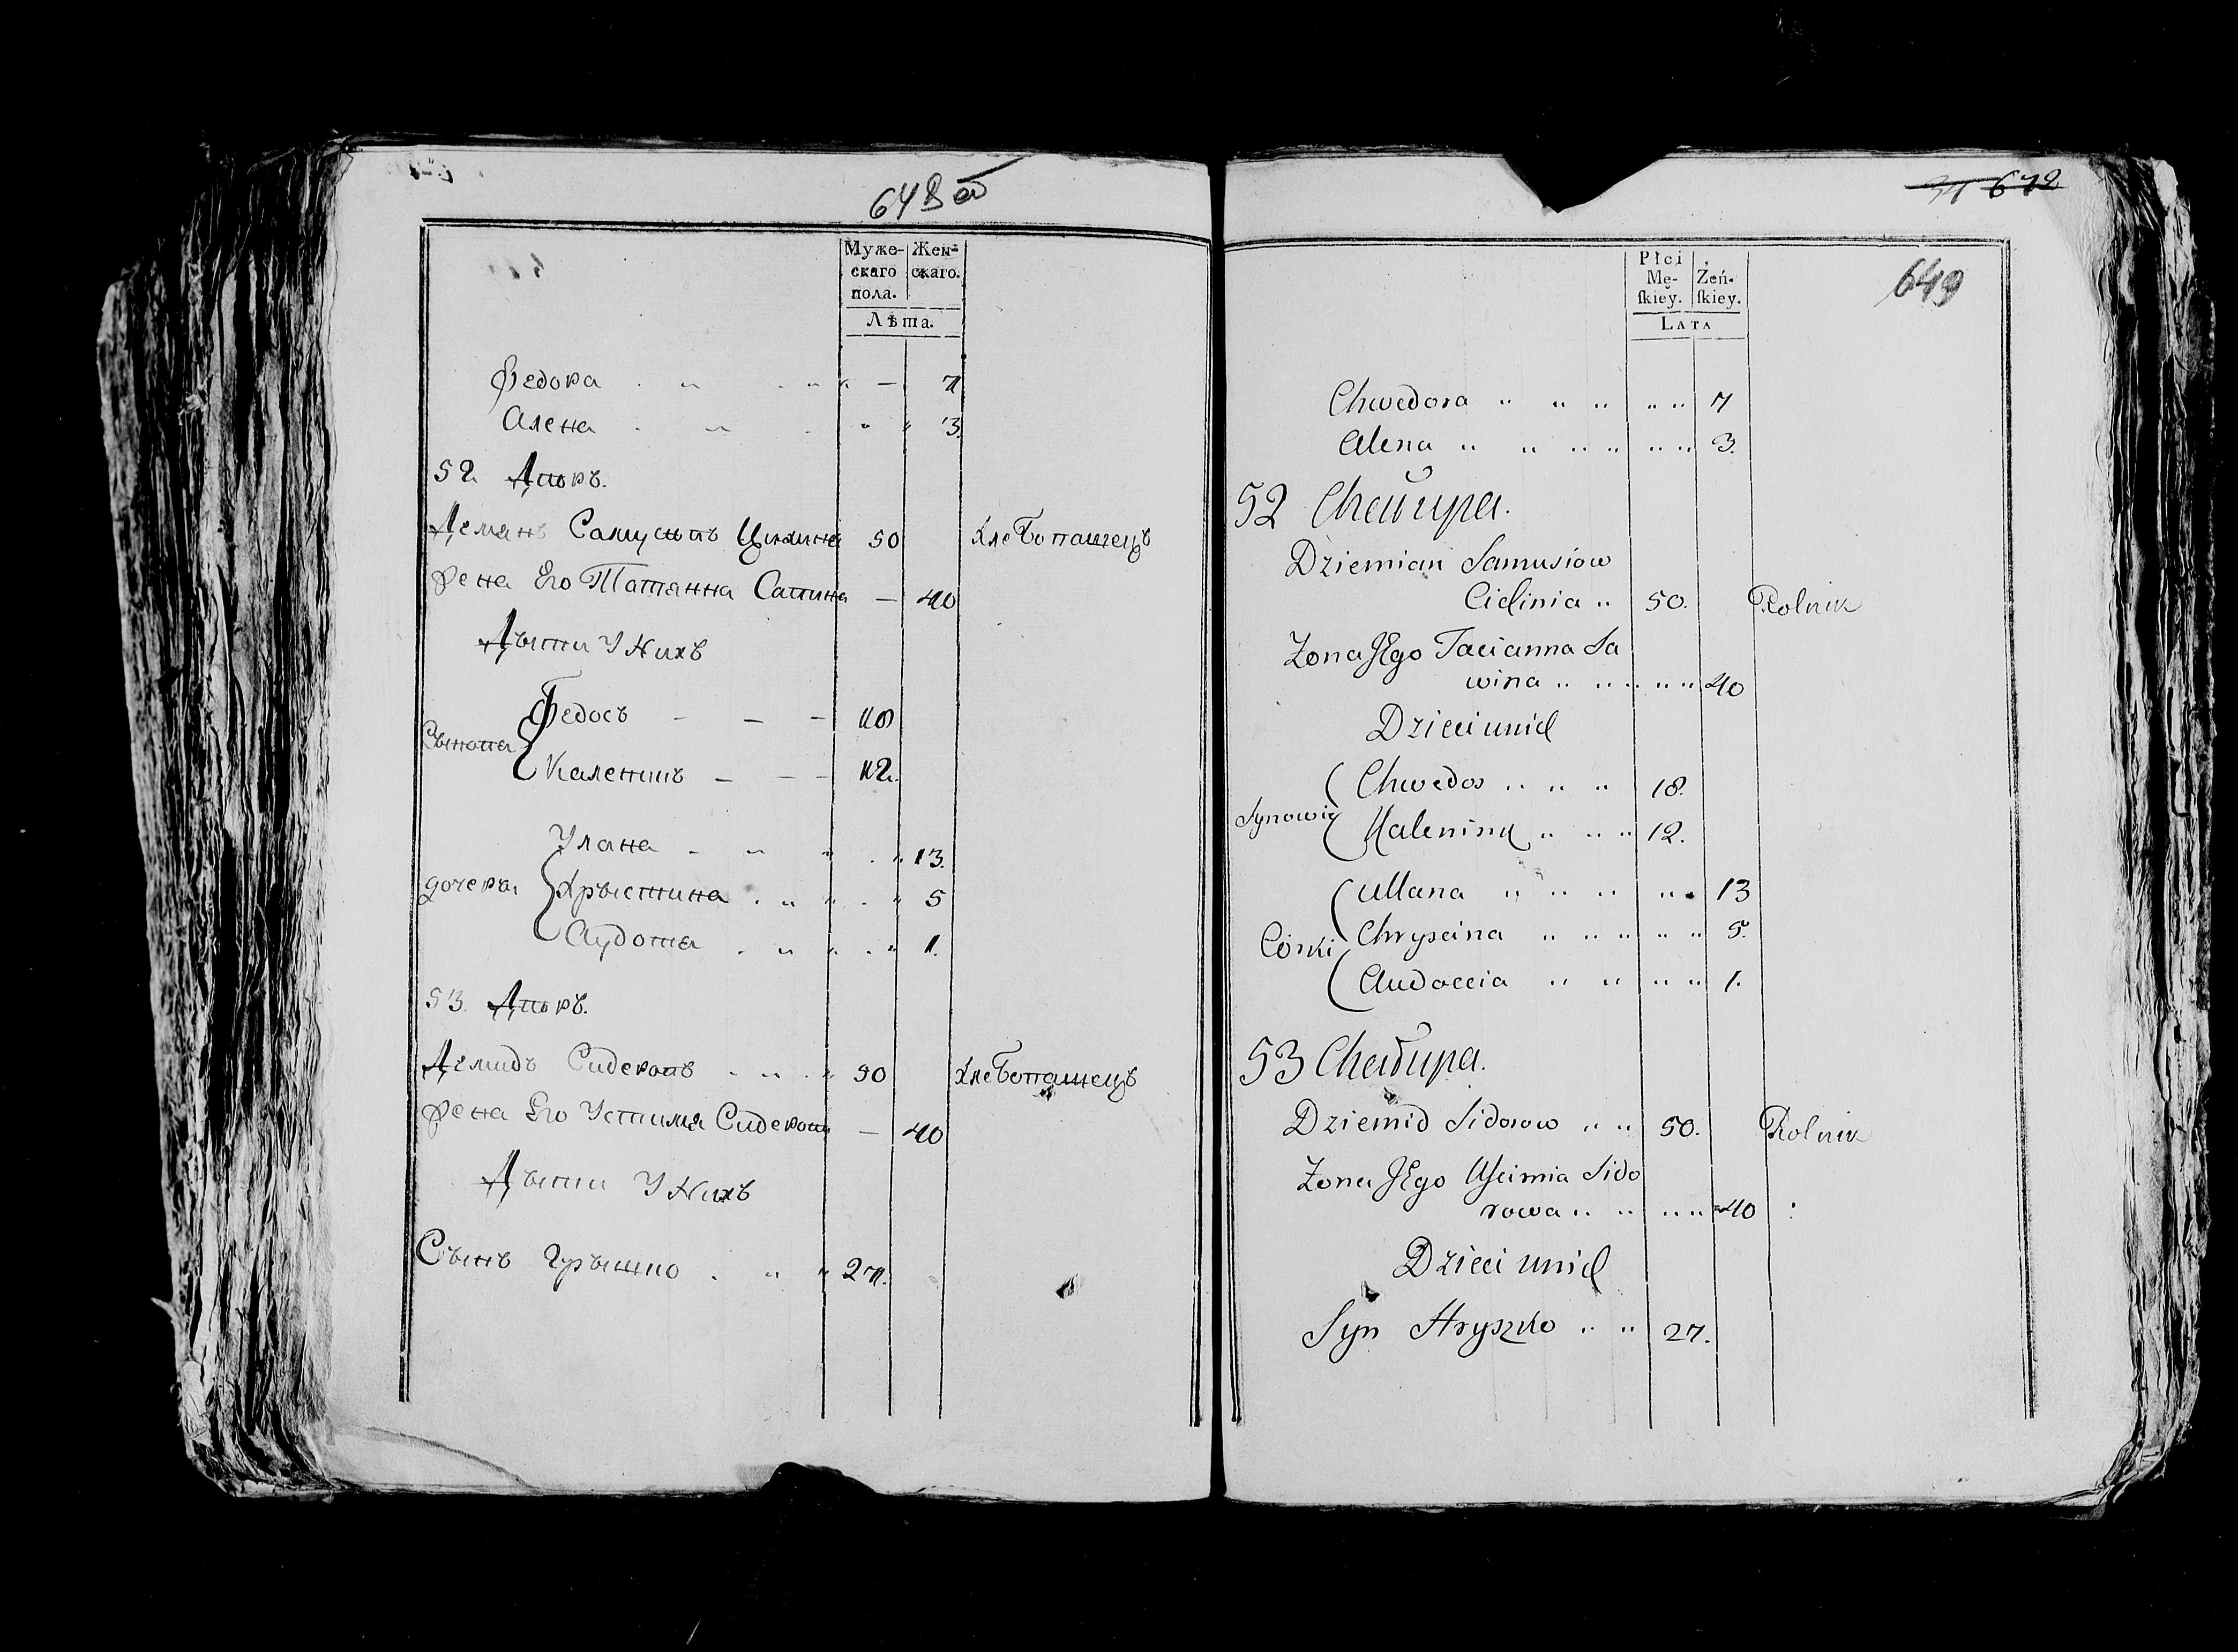 648 об
Муже-
скаго
пола.
Жен-
скаго.
Лѣта.
Федора 7
Алена 3.
52. Дворъ.
Демянъ Самусювъ 50 Хлебопашецъ
Жена Его Татянна Савина — 40
Дѣти У Нихъ
Федосъ — — — 18
Сынове
Каленикъ — — — 12.
Улана 13.
дочеры Хрыстина 5
Аудотя 1.
53. Дворъ.
Демидъ Сидеровъ 50 Хлебопашецъ
Жена Его Устимя Сидерова — 40
Дѣти У Нихъ
Сынъ Грышко 27.
642
649
Płci
Mę-
ſkiey.
Żeń-
ſkiey.
LATA
Chwedora 7
Alena 3.
52 Chałupa.
Dziemian Samusiow
Ciclinia 50. Rolnik
Zona Jego Tacianna Sa
wina 40
Dzieci unich
Chwedos 18.
Synowie
Kalenink 12.
Ullana 13
Chryscina 5.
Córki
Audoccia 1.
53 Chałupa.
Dziemid Sidorow 50. Rolnik
Zona Jego Uscimia Sido
rowa 40
Dzieci unich
Syn Hryszko 27.